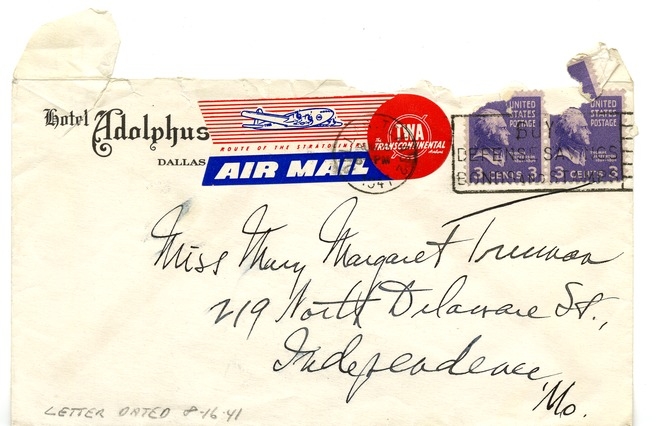 Hotel Adolphus
DALLAS
ROUTE OF THE STRATOLINERS
AIR MAIL
The
TWA
TRANSCONTINENTAL
Airline
PM
1941
BUY
DEFENSE SAVINGS
UNITED
STATES
POSTAGE
3 CENTS 3
UNITED
STATES
POSTAGE
3 CENTS 3
Miss Mary Margaret Truman
219 North Delaware St.,
Independence,
Mo.
LETTER DATED 8-16-41